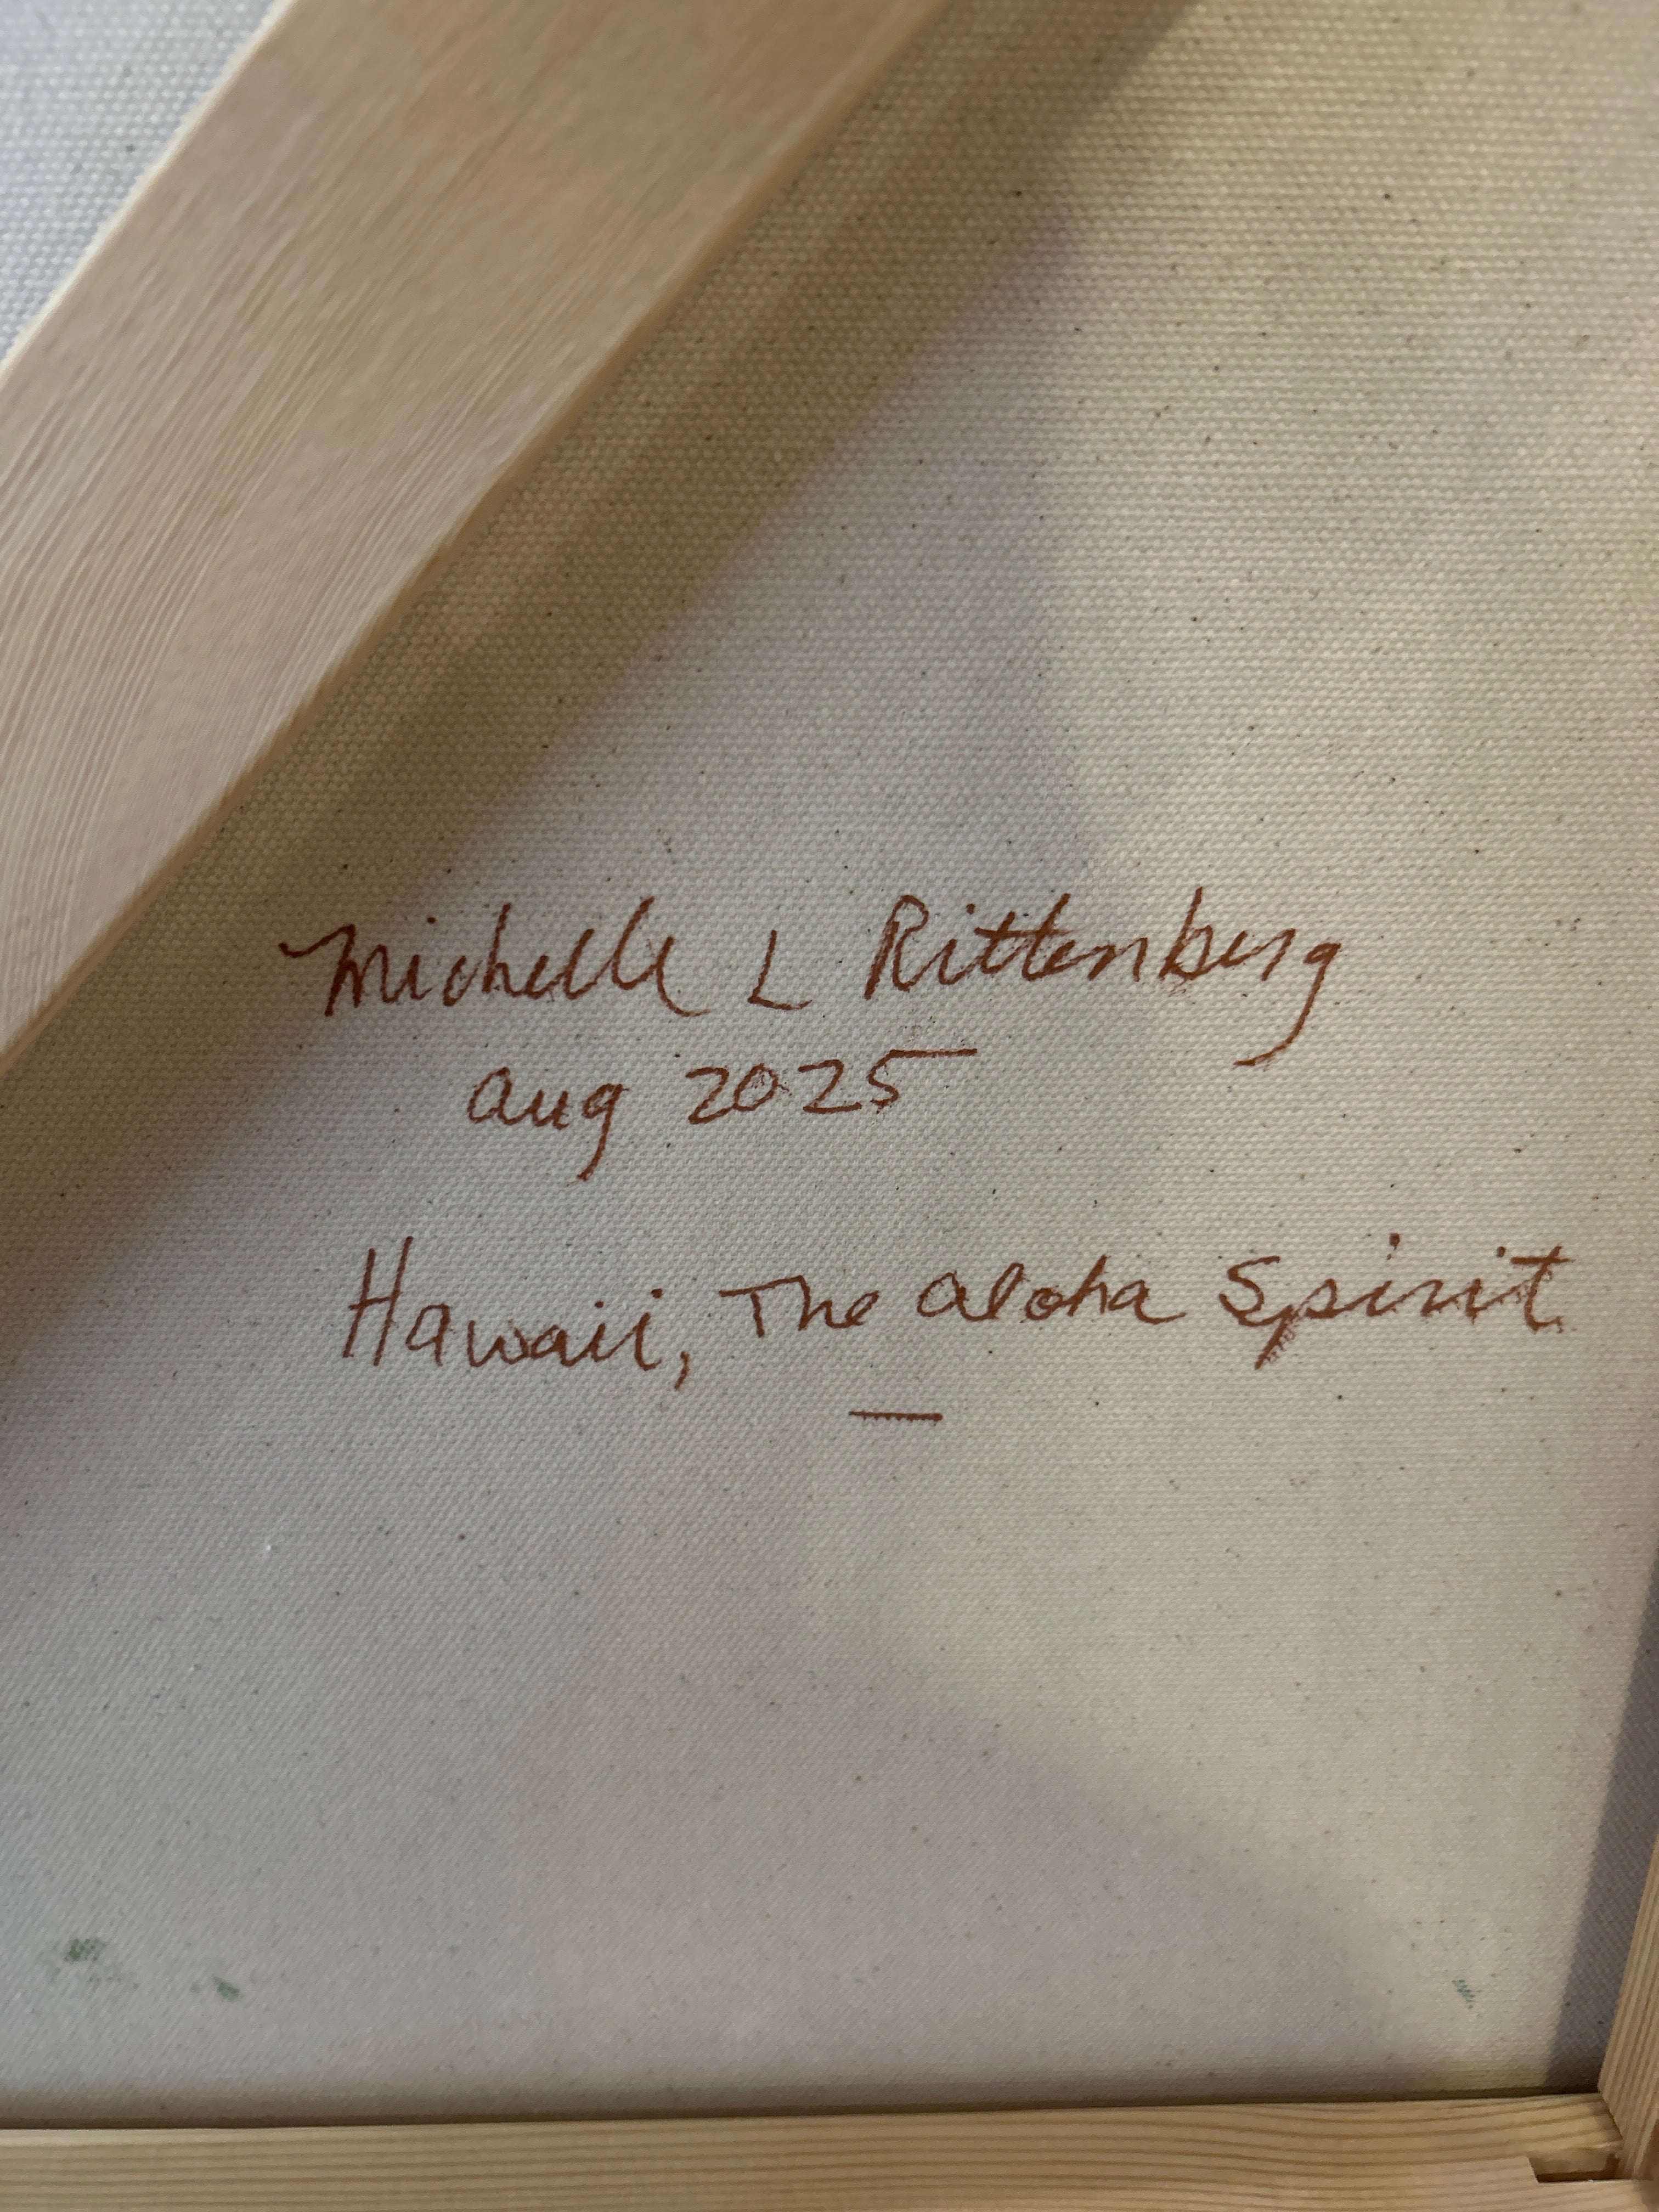 Michelle L Rittenberg
Aug 2025
Hawaii, The Aloha Spirit